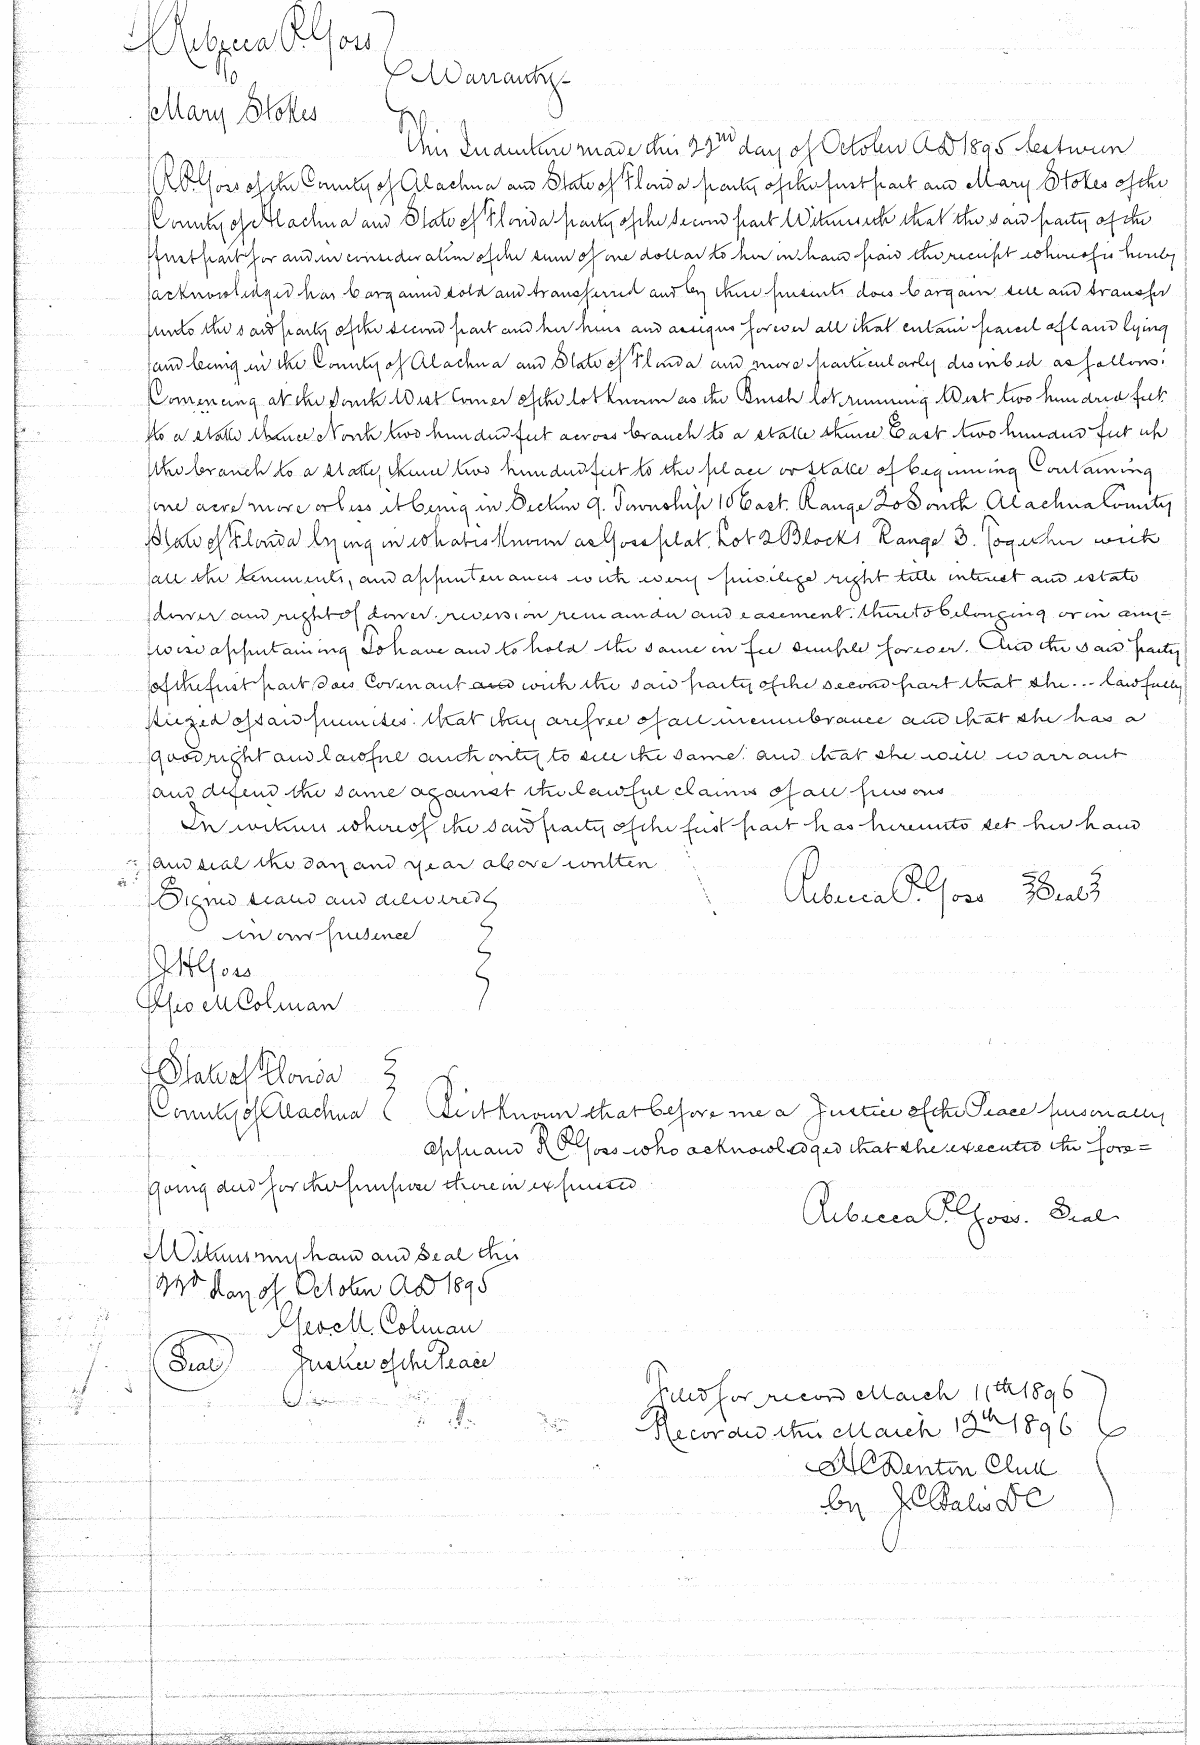 Rebecca P. Goss
To
Warranty
Mary Stokes
This Indenture made this 22nd day of October AD 1895 between
R.P. Goss of the County of Alachua and State of Florida party of the first part and Mary Stokes of the
County of Alachua and State of Florida party of the second part Witnesseth that the said party of the
first part for and in consideration of the sum of one dollar to her in hand paid the receipt whereof is hereby
acknowledged has bargained sold and transferred and by these presents does bargain sell and transfer
unto the said party of the second part and her heirs and assigns forever all that certain parcel of land lying
and being in the County of Alachua and State of Florida and more particularly described as follows:
Comencing at the South West Corner of the lot known as the lot running West two hundred feet
to a stake thence North two hundred feet across branch to a stake thence East two hundred feet up
the branch to a stake, thence two hundred feet to the place or stake of beginning Containing
one acre more or less it being in Section 9. Township 10 East. Range 20 South Alachua County
State of Florida lying in what is known as Goss plat. Lot 2 Block 1 Range 3. Together with
all the tenements, and appurtenances with every privilege right title interest and estate
dower and right of dower. reversion remainder and easement. thereto belonging or in any=
wise appertaining To have and to hold the same in fee simple forever. And the said party
of the first part does Covenant and with the said party of the second part that she... lawfully
siezed of said premises: that they are free of all incumbrance and that she has a
good right and lawful authority to sell the same: and that she will warrant
and defend the same against the lawful claims of all persons
In witness whereof the said party of the first part has hereunto set her hand
and seal the day and year above written
Rebecca P. Goss Seal
Signed sealed and delivered
in our presence
J H Goss
Geo M Colman
State of Florida
County of Alachua Be it Known that before me a Justice of the Peace personally
appeared R P Goss who acknowledged that she executed the fore=
going deed for the purpose therein expressed
Rebecca P. Goss. Seal
Witness my hand and Seal this
22d day of October AD 1895
Geo. M. Colman
Seal Justice of the Peace
Filed for record March 11th 1896
Recorded this March 12th 1896
H C Denton Clerk
by J C DC